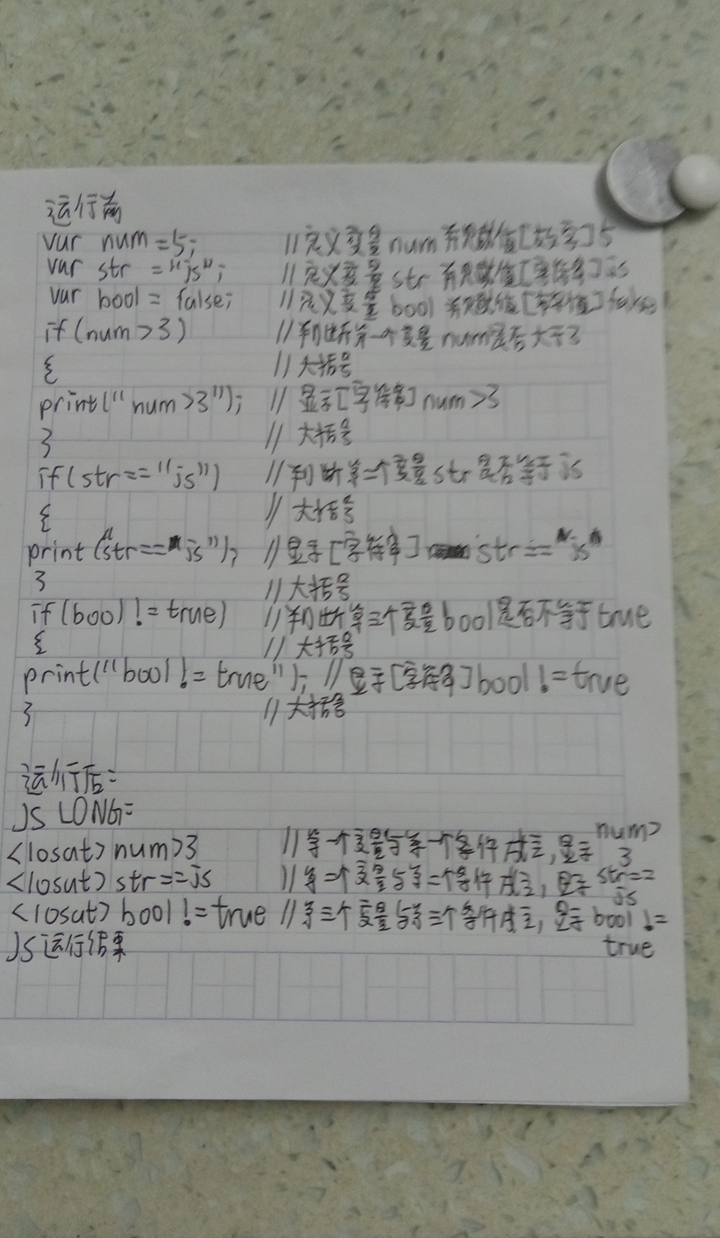 运行前
var num=5; //定义变量num 有效数值[数字]5
var str ="js"; //定义变量str 有效数值[字符串]js
var bool= false; //定义变量 bool 有效数值[字符值]false
if(num>3) //判断第一个变量 num是否大于3
{ //大括号
print("num>3"); //显示[字符串]num>3
} //大括号
if(str=="js") //判断第二个变量str是否等于js
{ //大括号
print("str=="js"); //显示[字符串] str=="js"
} //大括号
if(bool!=true) //判断第三个变量bool是否不等于true
{ //大括号
print("bool!=true"); //显示[字符串]bool!=true
} //大括号
运行后:
JS LONG=
<losat>num>3 //第一个变量与第一个条件成立,显示num>3
<losat>str==js //第二个变量与第二个条件成立,显示str==js
<losat>bool!=true //第三个变量与第三个条件成立,显示bool!=true
JS运行结束